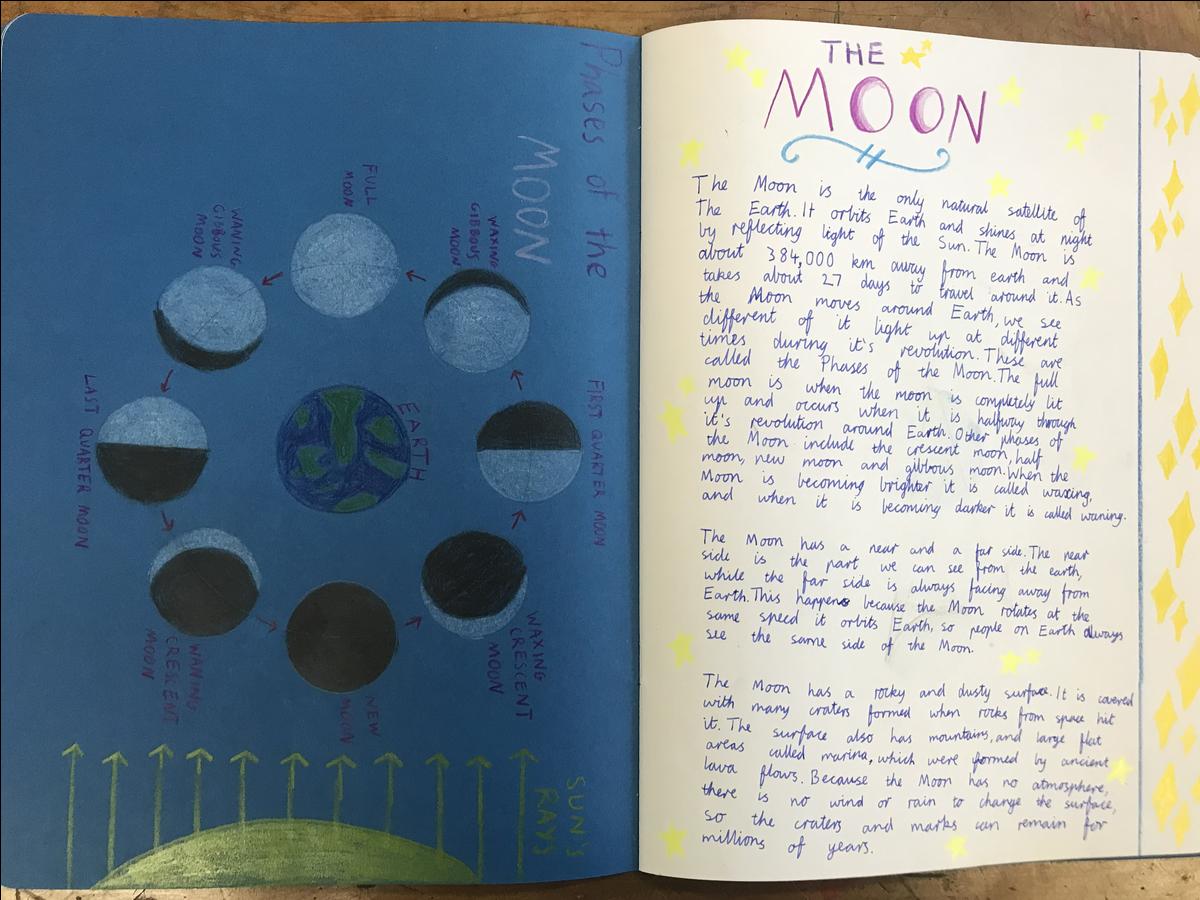 Phases of the
MOON
FULL
MOON
WAXING
GIBBOUS
MOON
WANING
GIBBOUS
MOON
FIRST QUARTER MOON
EARTH
LAST QUARTER MOON
WAXING
CRESCENT
MOON
NEW
MOON
WANING
CRESCENT
MOON
SUN'S
RAYS
THE
MOON
The Moon is the only natural satellite of
The Earth. It orbits Earth and shines at night
by reflecting light of the Sun. The Moon is
about 384,000 km away from earth and
takes about 27 days to travel around it. As
the Moon moves around Earth, we see
different of it light up at different
times during it's revolution. These are
called the Phases of the Moon. The full
moon is when the moon is completely lit
up and occurs when it is halfway through
it's revolution around Earth. Other phases of
the Moon include the crescent moon, half
moon, new moon and gibbous moon. When the
Moon is becoming brighter it is called waxing,
and when it is becoming darker it is called waning.
The Moon has a near and a far side. The near
side is the part we can see from the earth,
while the far side is always facing away from
Earth. This happens because the Moon rotates at the
same speed it orbits Earth, so people on Earth always
see the same side of the Moon.
The Moon has a rocky and dusty surface. It is covered
with many craters formed when rocks from space hit
it. The surface also has mountains, and large flat
areas called marina, which were formed by ancient
lava flows. Because the Moon has no atmosphere,
there is no wind or rain to change the surface,
so the craters and marks can remain for
millions of years.